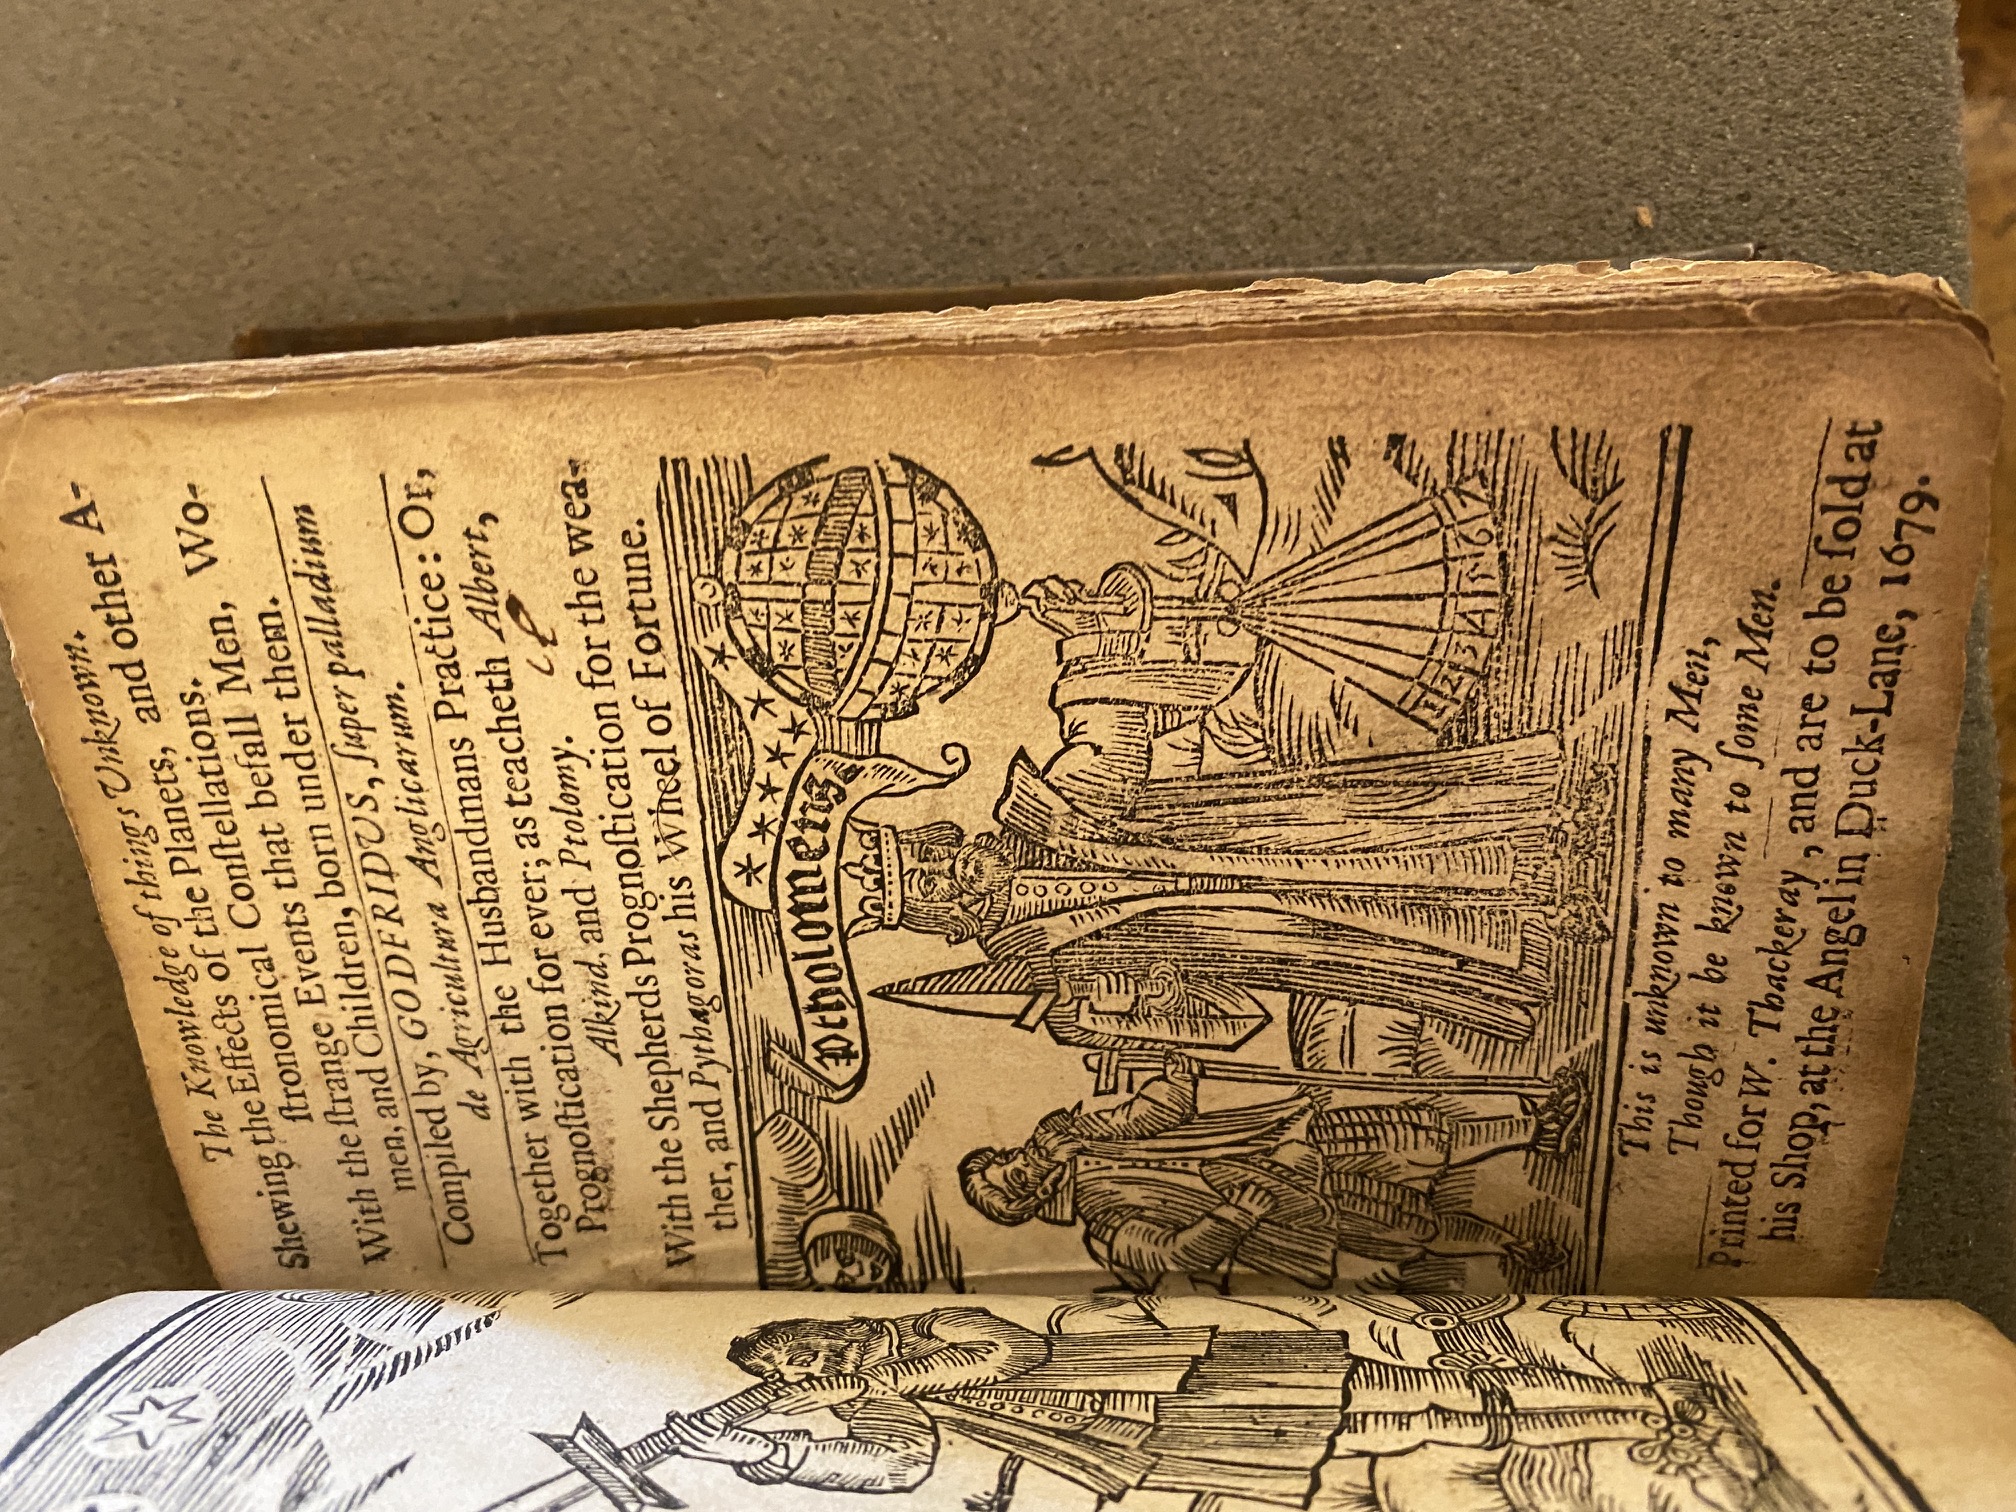 The Knowledge of things Unknown.
Shewing the Effects of the Planets, and other A-
ſtronomical Conſtellations.
With the ſtrange Events that befall Men, Wo-
men, and Children, born under them.
Compiled by, GODFRIDUS, ſuper palladium
de Agricultura Anglicarum.
Together with the Husbandmans Practice: Or,
Prognoſtication for ever; as teacheth Albert,
Alkind, and Ptolomy.
With the Shepherds Prognoſtication for the wea-
ther, and Pythagoras his Wheel of Fortune.
Ptholomeus.
1 2 3 4 5 6 7
This is unknown to many Men,
Though it be known to ſome Men.
Printed for W. Thackeray, and are to be ſold at
his Shop, at the Angel in Duck-Lane, 1679.